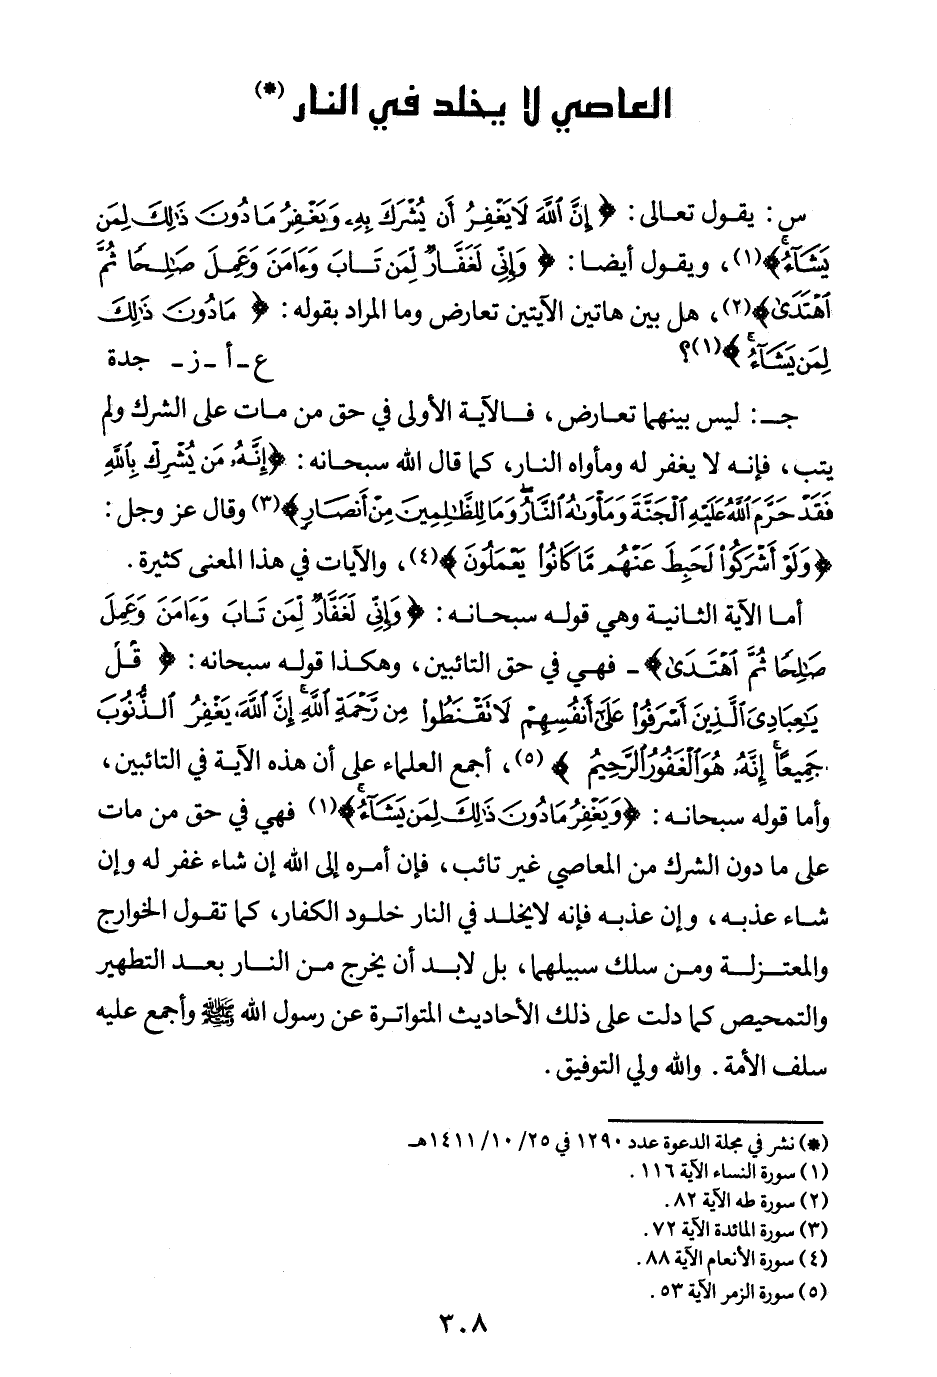 العاصي لا يخلد في النار (*)
س: يقول تعالى: ﴿ إِنَّ ٱللَّهَ لَا يَغْفِرُ أَن يُشْرَكَ بِهِۦ وَيَغْفِرُ مَا دُونَ ذَٰلِكَ لِمَن
يَشَآءُۚ ﴾(١)، ويقول أيضا: ﴿ وَإِنِّي لَغَفَّارٌ لِّمَن تَابَ وَءَامَنَ وَعَمِلَ صَٰلِحًا ثُمَّ
ٱهْتَدَىٰ ﴾(٢)، هل بين هاتين الآيتين تعارض وما المراد بقوله: ﴿ مَا دُونَ ذَٰلِكَ
لِمَن يَشَآءُۚ ﴾(١)؟ ع - أ - ز - جدة
جـ: ليس بينهما تعارض، فالآية الأولى في حق من مات على الشرك ولم
يتب، فإنه لا يغفر له ومأواه النار، كما قال الله سبحانه: ﴿ إِنَّهُۥ مَن يُشْرِكْ بِٱللَّهِ
فَقَدْ حَرَّمَ ٱللَّهُ عَلَيْهِ ٱلْجَنَّةَ وَمَأْوَىٰهُ ٱلنَّارُۖ وَمَا لِلظَّٰلِمِينَ مِنْ أَنصَارٍ ﴾(٣) وقال عز وجل:
﴿ وَلَوْ أَشْرَكُوا۟ لَحَبِطَ عَنْهُم مَّا كَانُوا۟ يَعْمَلُونَ ﴾(٤)، والآيات في هذا المعنى كثيرة.
أما الآية الثانية وهي قوله سبحانه: ﴿ وَإِنِّي لَغَفَّارٌ لِّمَن تَابَ وَءَامَنَ وَعَمِلَ
صَٰلِحًا ثُمَّ ٱهْتَدَىٰ ﴾ - فهي في حق التائبين، وهكذا قوله سبحانه: ﴿ قُلْ
يَٰعِبَادِىَ ٱلَّذِينَ أَسْرَفُوا۟ عَلَىٰٓ أَنفُسِهِمْ لَا تَقْنَطُوا۟ مِن رَّحْمَةِ ٱللَّهِۚ إِنَّ ٱللَّهَ يَغْفِرُ ٱلذُّنُوبَ
جَمِيعًاۚ إِنَّهُۥ هُوَ ٱلْغَفُورُ ٱلرَّحِيمُ ﴾(٥)، أجمع العلماء على أن هذه الآية في التائبين،
وأما قوله سبحانه: ﴿ وَيَغْفِرُ مَا دُونَ ذَٰلِكَ لِمَن يَشَآءُۚ ﴾(١) فهي في حق من مات
على ما دون الشرك من المعاصي غير تائب، فإن أمره إلى الله إن شاء غفر له وإن
شاء عذبه، وإن عذبه فإنه لا يخلد في النار خلود الكفار، كما تقول الخوارج
والمعتزلة ومن سلك سبيلهما، بل لابد أن يخرج من النار بعد التطهير
والتمحيص كما دلت على ذلك الأحاديث المتواترة عن رسول الله ﷺ وأجمع عليه
سلف الأمة. والله ولي التوفيق.
(*) نشر في مجلة الدعوة عدد ١٢٩٠ في ٢٥/ ١٠/ ١٤١١هـ
(١) سورة النساء الآية ١١٦.
(٢) سورة طه الآية ٨٢.
(٣) سورة المائدة الآية ٧٢.
(٤) سورة الأنعام الآية ٨٨.
(٥) سورة الزمر الآية ٥٣.
٣٠٨